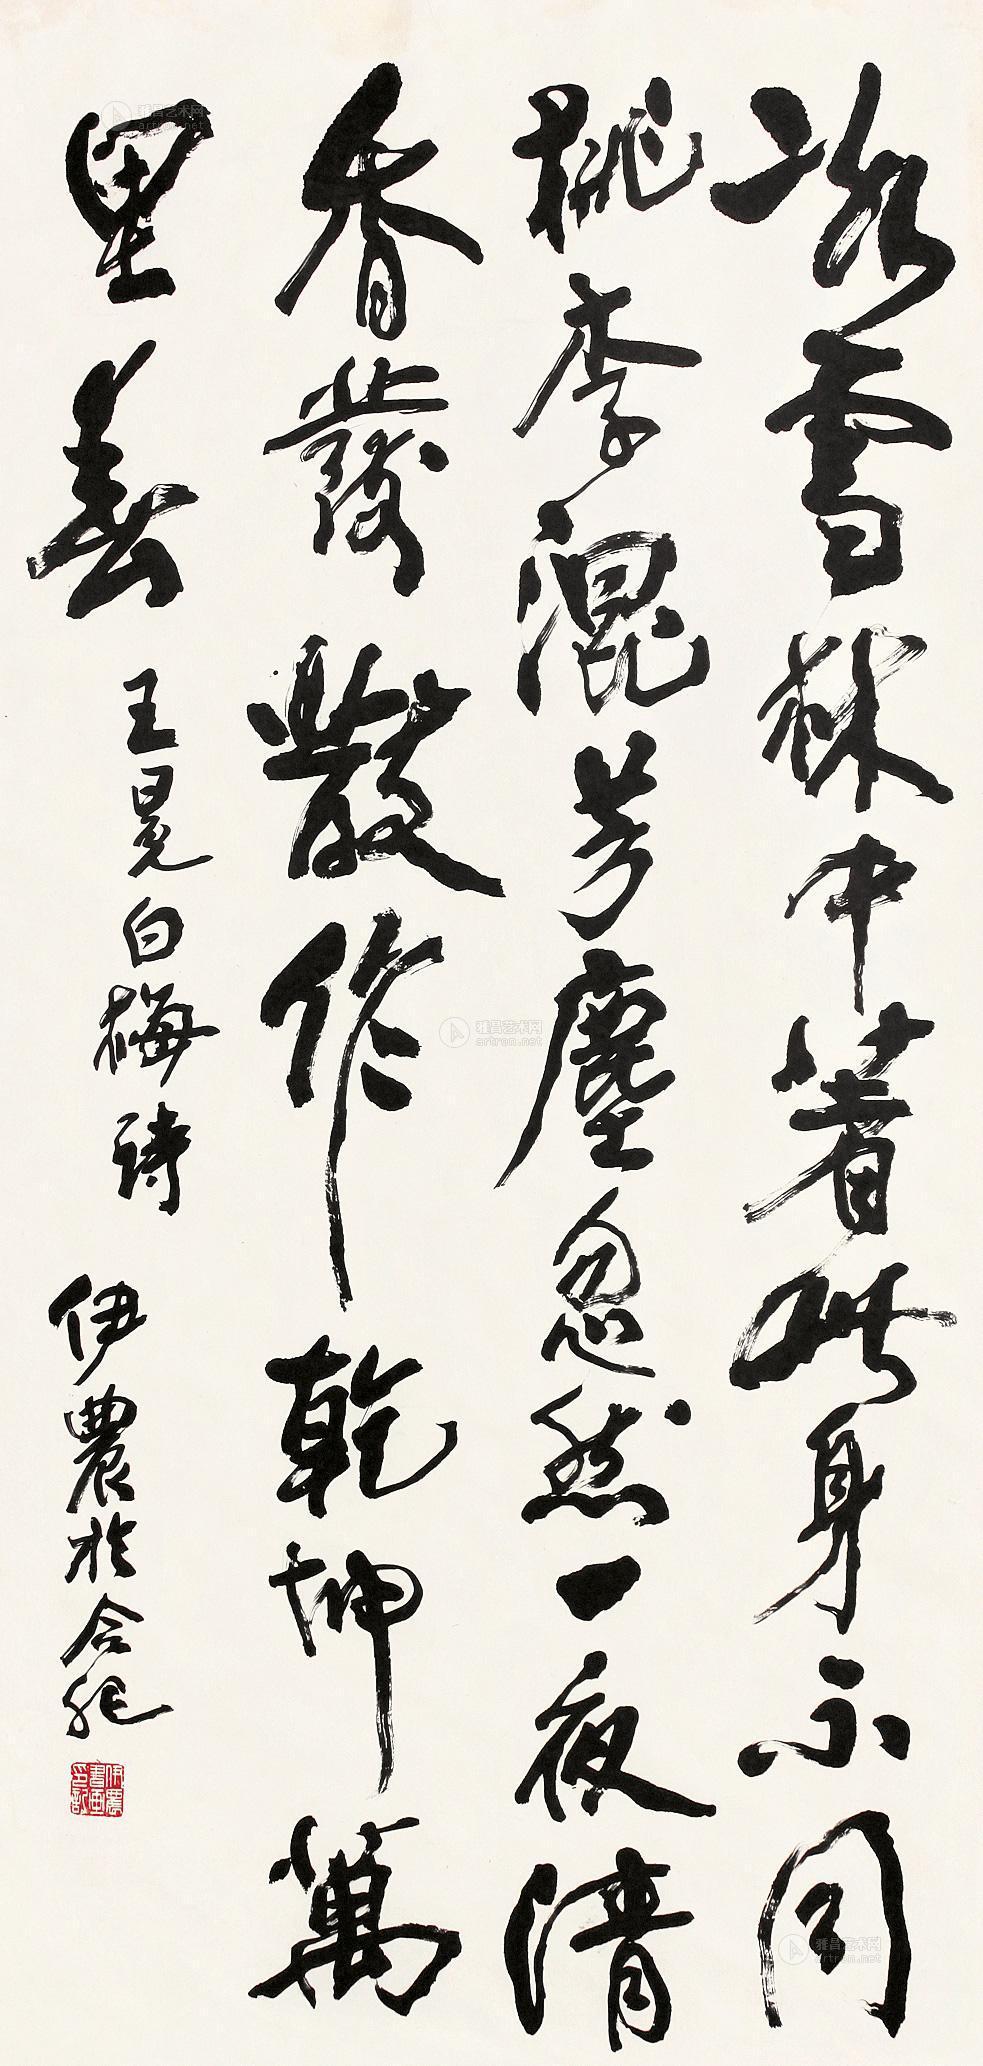 冰雪林中著此身不同
桃李混芳塵忽然一夜清
香發散作乾坤萬
里春
王冕白梅詩
伊農於合肥
伊農書画印記
雅昌艺术网
artron.net
雅昌艺术网
artron.net
雅昌艺术网
artron.net